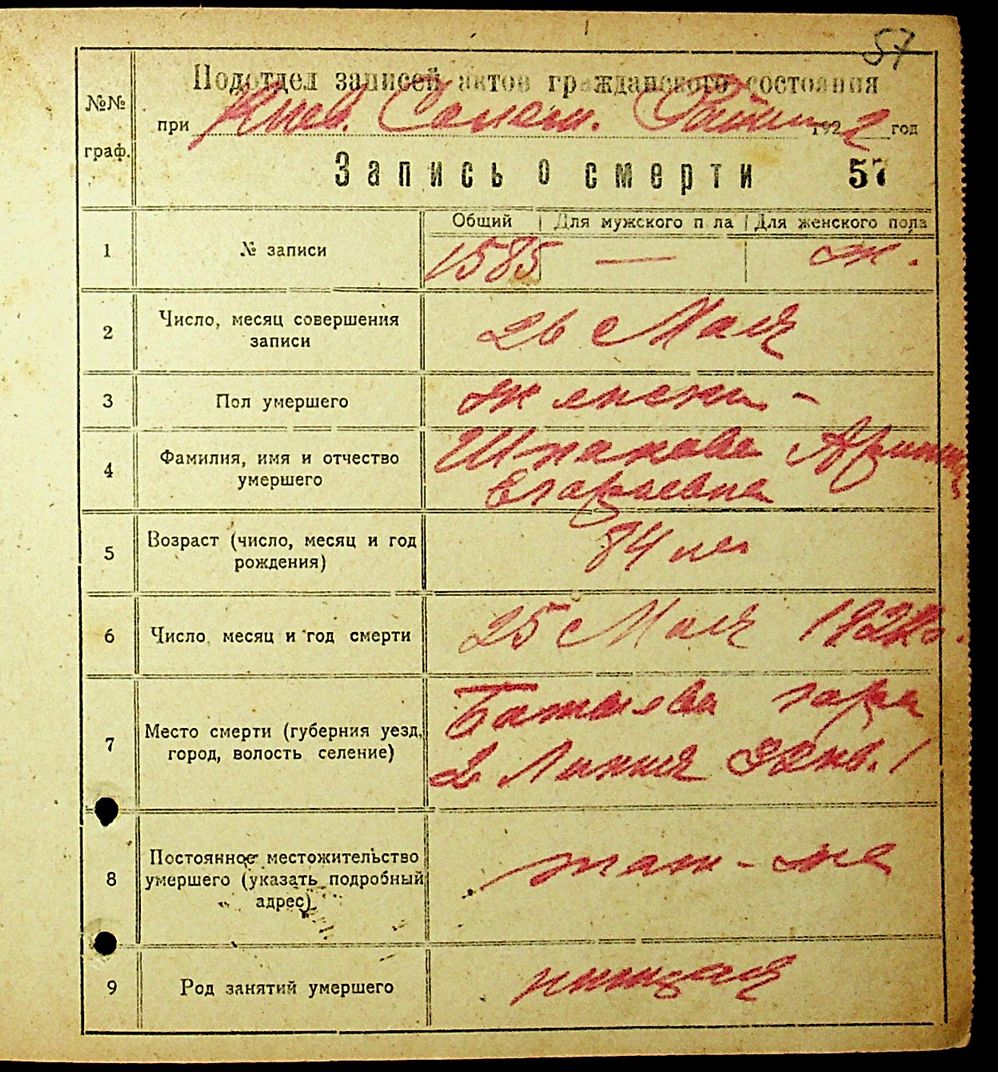 57
Подотдел записей актов гражданского состояния
№№
граф.
при Киев. Солом. 1922 год
Запись о смерти 57
Общий | Для мужского п ла | Для женского пола
1 № записи 1585 — ж.
2 Число, месяц совершения
записи
26 Мая
3 Пол умершего женски -
4 Фамилия, имя и отчество
умершего
Шпакова Арина
Егорьевна
5 Возраст (число, месяц и год
рождения)
84 лет
6 Число, месяц и год смерти 25 Мая 1922 г.
7 Место смерти (губерния уезд,
город, волость селение)
Батыева гора
2 Линия 32 кв. 1
8 Постоянное местожительство
умершего (указать подробный
адрес)
там-же
9 Род занятий умершего нищая